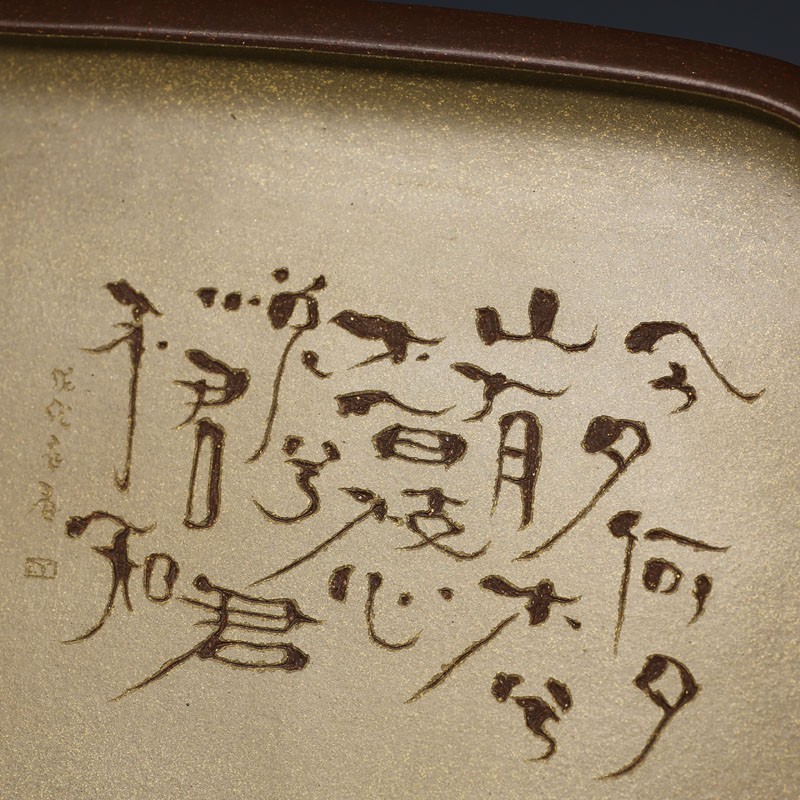 今夕何夕
山有木兮
木有枝心
悦君兮君
不知